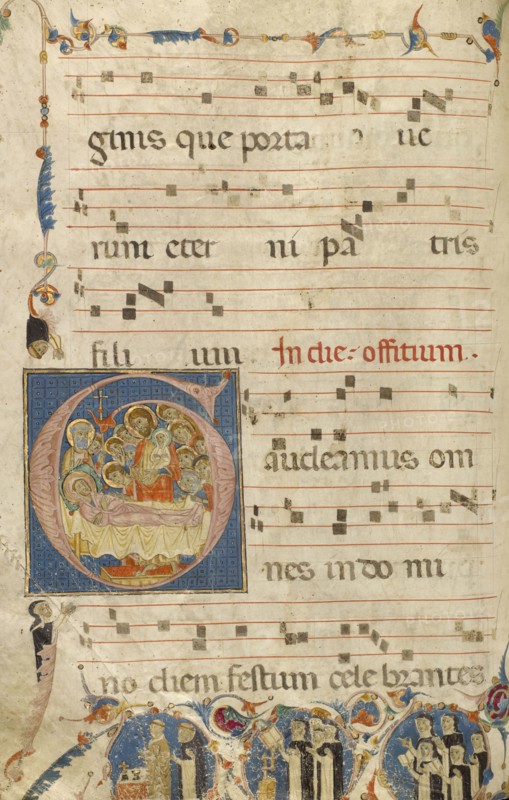 ginis que porta ue
rum eter ni pa tris
fili um In die offitium.
Gaudeamus om
nes in do mi
no diem festum cele brantes